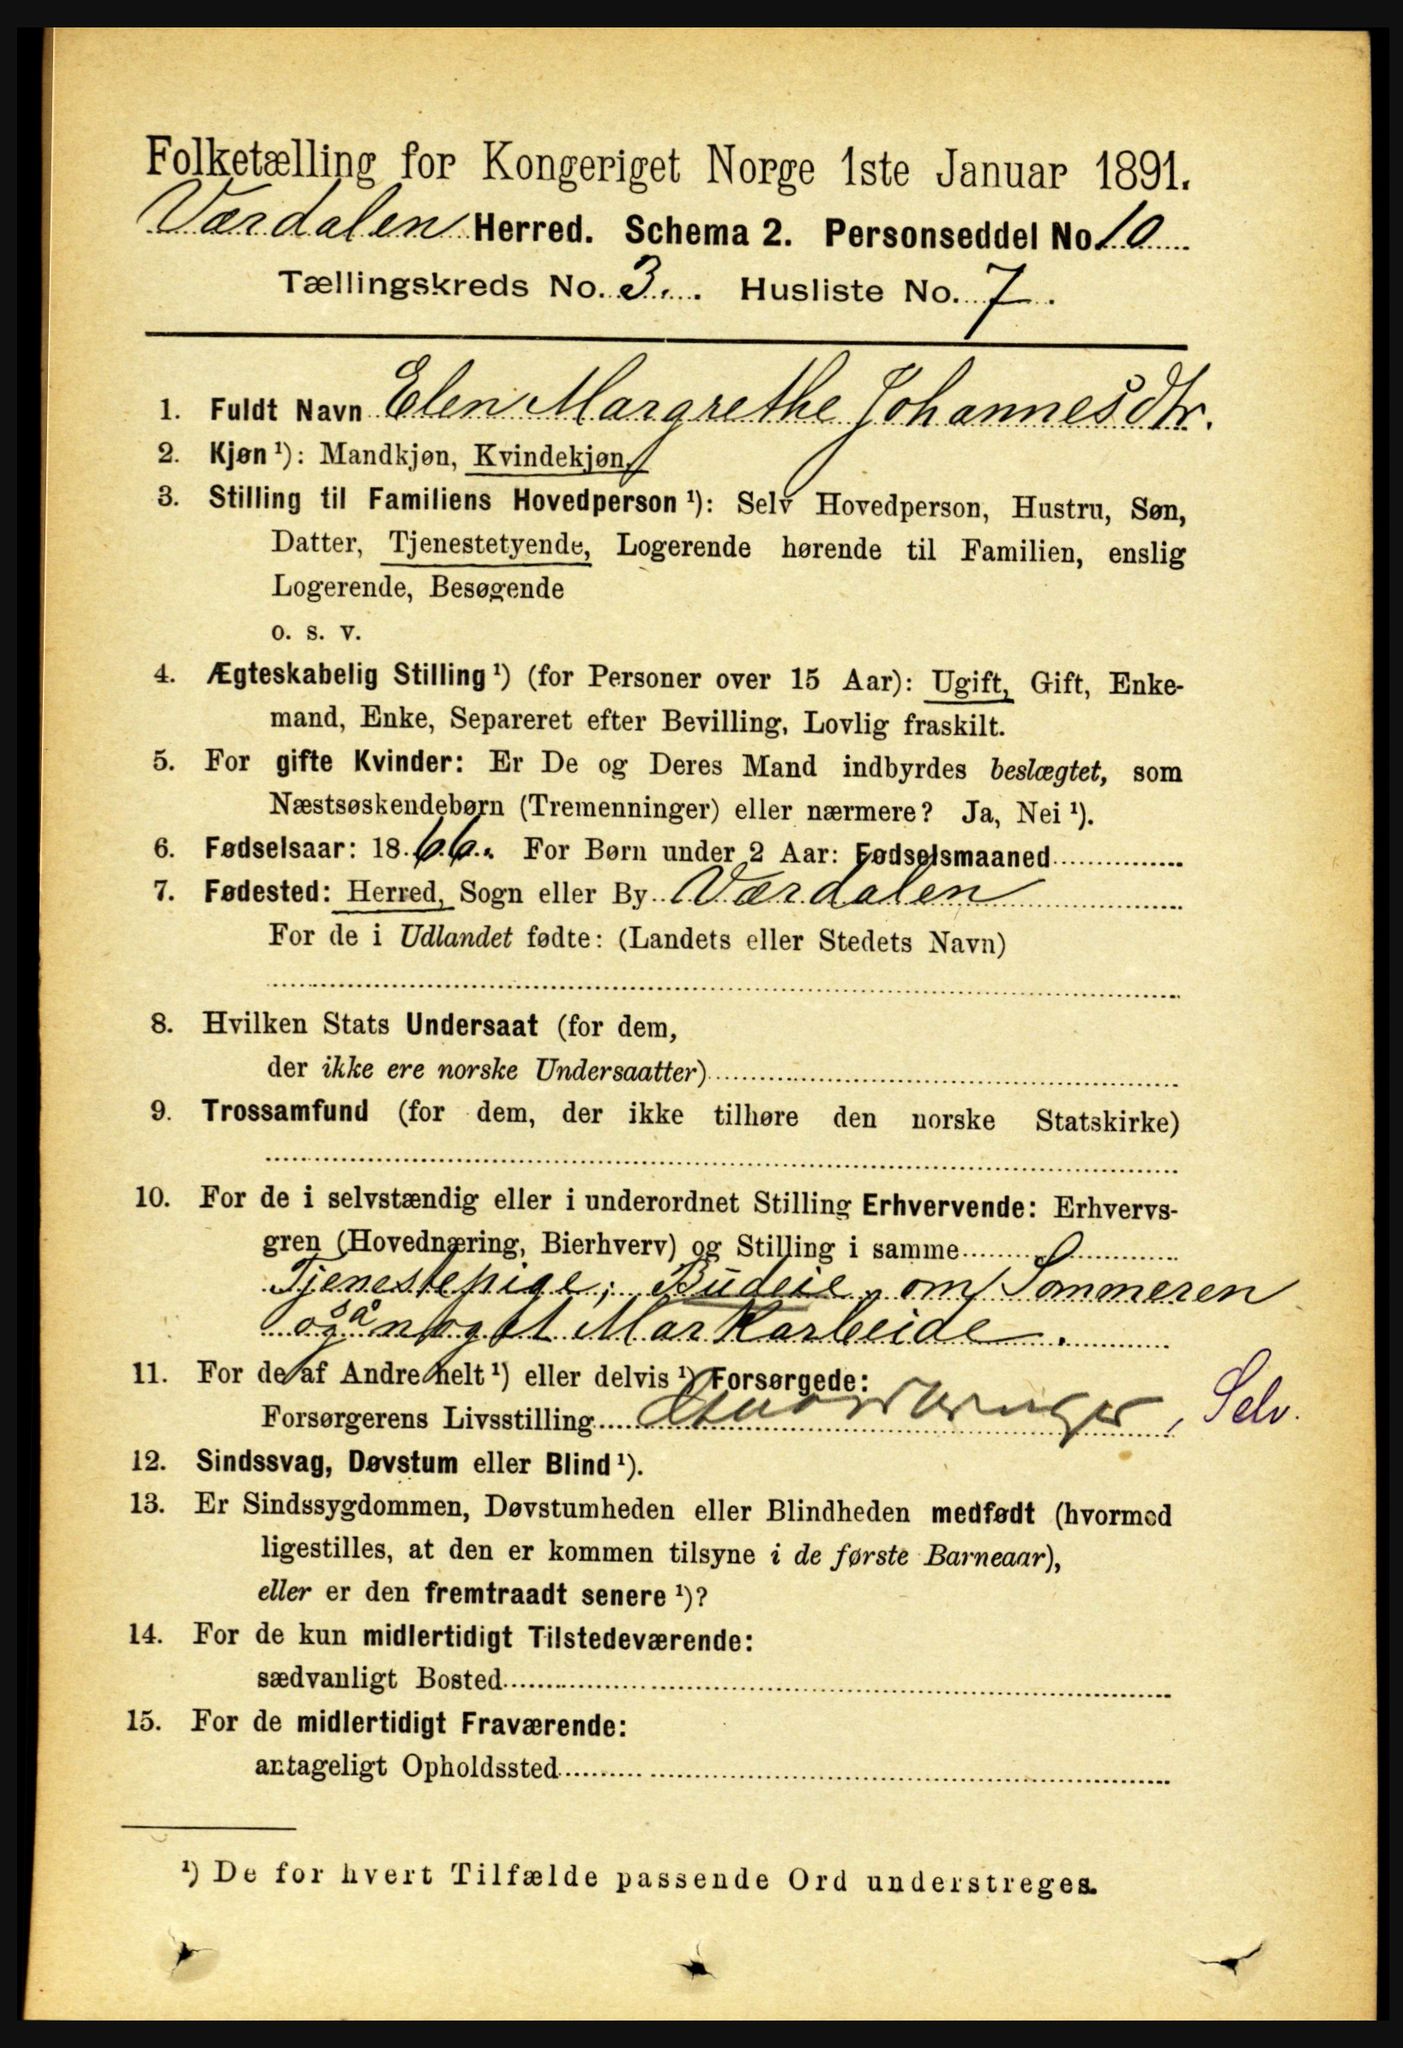 Folketælling for Kongeriget Norge 1ste Januar 1891.
Værdalen Herred. Schema 2. Personseddel No 10
Tællingskreds No. 3. Husliste No. 7.
1. Fuldt Navn Elen Margrethe Johannesdtr.
2. Kjøn ¹): Mandkjøn, Kvindekjøn
3. Stilling til Familiens Hovedperson ¹): Selv Hovedperson, Hustru, Søn,
Datter, Tjenestetyende, Logerende hørende til Familien, enslig
Logerende, Besøgende
o. s. v.
4. Ægteskabelig Stilling ¹) (for Personer over 15 Aar): Ugift, Gift, Enke-
mand, Enke, Separeret efter Bevilling, Lovlig fraskilt.
5. For gifte Kvinder: Er De og Deres Mand indbyrdes beslægtet, som
Næstsøskendebørn (Tremenninger) eller nærmere? Ja, Nei ¹).
6. Fødselsaar: 1866. For Børn under 2 Aar: Fødselsmaaned
7. Fødested: Herred, Sogn eller By Værdalen
For de i Udlandet fødte: (Landets eller Stedets Navn)
8. Hvilken Stats Undersaat (for dem,
der ikke ere norske Undersaatter)
9. Trossamfund (for dem, der ikke tilhøre den norske Statskirke)
10. For de i selvstændig eller i underordnet Stilling Erhvervende: Erhvervs-
gren (Hovednæring, Bierhverv) og Stilling i samme
Tjenestepige; Budeie, om Sommeren
også noget Markarbeide.
11. For de af Andre helt ¹) eller delvis ¹) Forsørgede:
Forsørgerens Livsstilling Gaardbruger, Selv.
12. Sindssvag, Døvstum eller Blind ¹).
13. Er Sindssygdommen, Døvstumheden eller Blindheden medfødt (hvormed
ligestilles, at den er kommen tilsyne i de første Barneaar),
eller er den fremtraadt senere ¹)?
14. For de kun midlertidigt Tilstedeværende:
sædvanligt Bosted
15. For de midlertidigt Fraværende:
antageligt Opholdssted
¹) De for hvert Tilfælde passende Ord understreges.